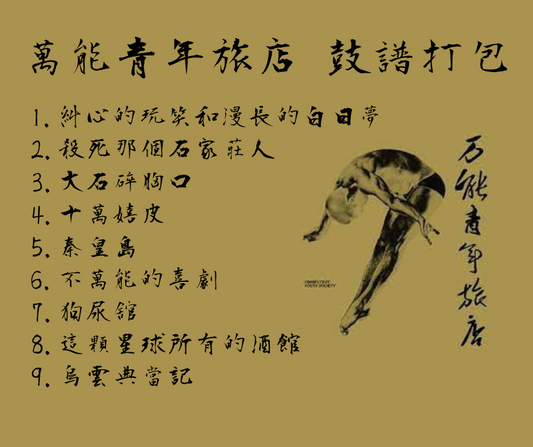 萬能青年旅店 鼓譜打包
1. 糾心的玩笑和漫長的白日夢
2. 殺死那個石家莊人
3. 大石碎胸口
4. 十萬嬉皮
5. 秦皇島
6. 不萬能的喜劇
7. 狗尿館
8. 這顆星球所有的酒館
9. 烏雲典當記
万能青年旅店
OMNIPOTENT
YOUTH SOCIETY